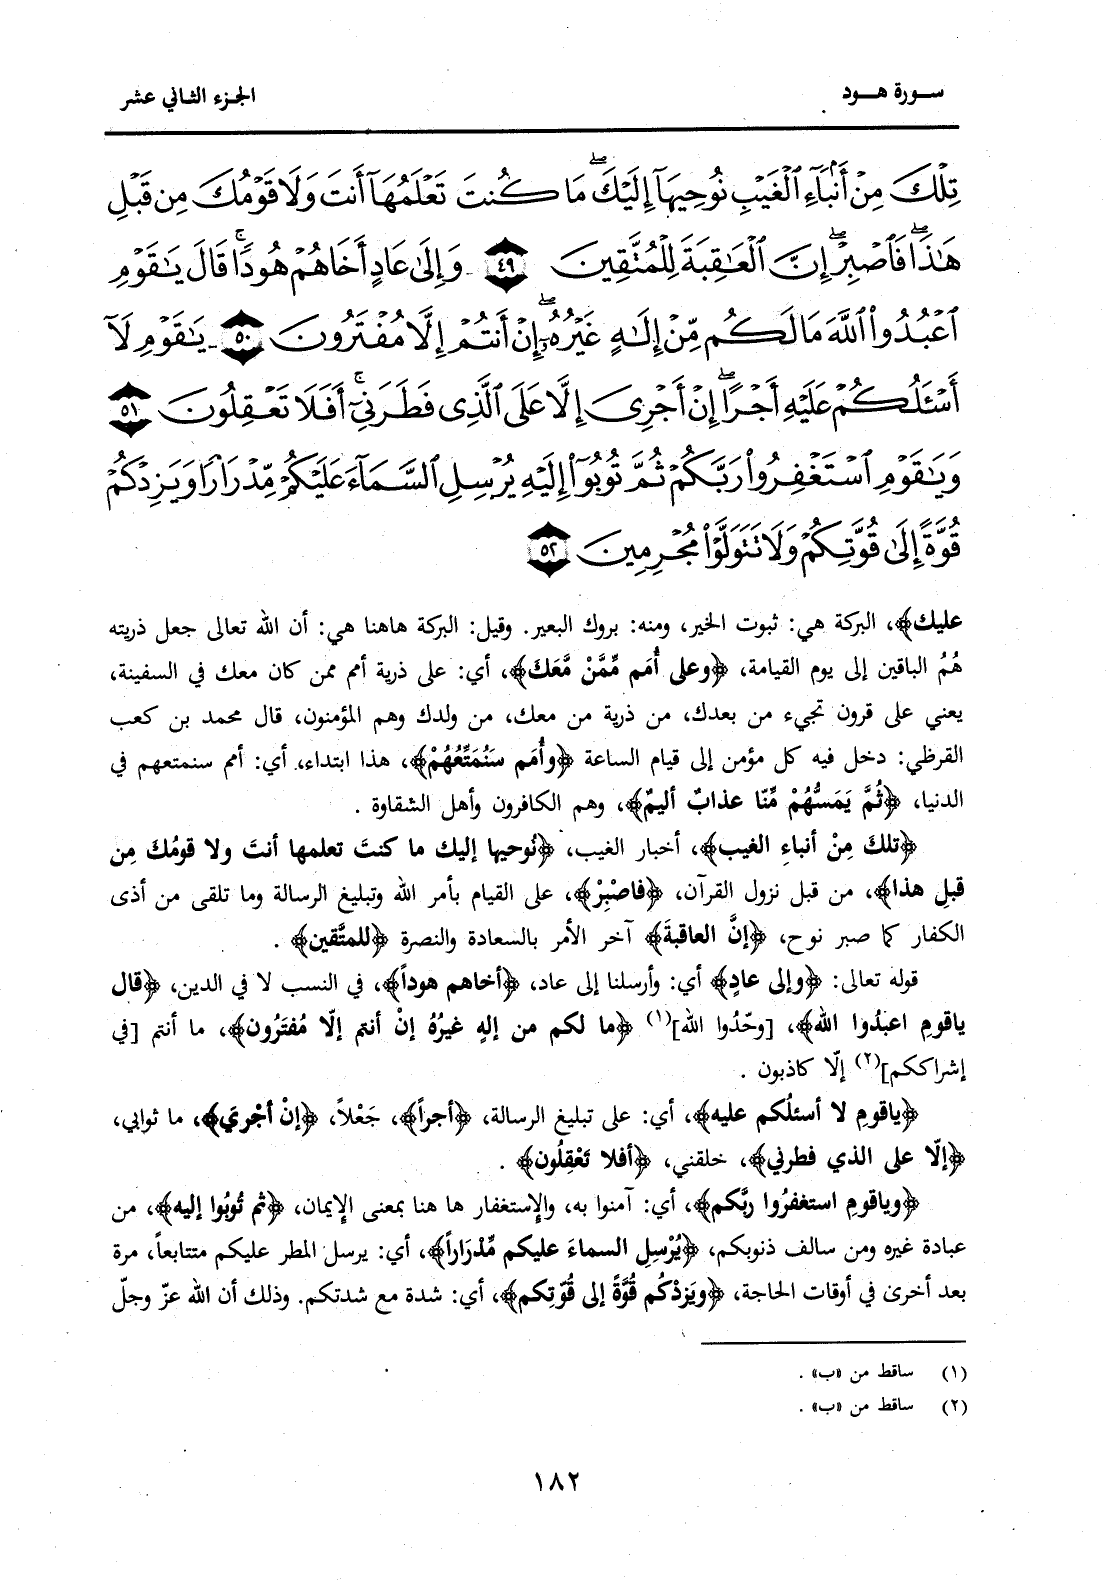 سورة هود
الجزء الثاني عشر
تِلْكَ مِنْ أَنۢبَآءِ ٱلْغَيْبِ نُوحِيهَآ إِلَيْكَ ۖ مَا كُنتَ تَعْلَمُهَآ أَنتَ وَلَا قَوْمُكَ مِن قَبْلِ
هَٰذَا ۖ فَٱصْبِرْ ۖ إِنَّ ٱلْعَٰقِبَةَ لِلْمُتَّقِينَ ٤٩ وَإِلَىٰ عَادٍ أَخَاهُمْ هُودًا ۚ قَالَ يَٰقَوْمِ
ٱعْبُدُوا۟ ٱللَّهَ مَا لَكُم مِّنْ إِلَٰهٍ غَيْرُهُۥٓ ۖ إِنْ أَنتُمْ إِلَّا مُفْتَرُونَ ٥٠ يَٰقَوْمِ لَآ
أَسْـَٔلُكُمْ عَلَيْهِ أَجْرًا ۖ إِنْ أَجْرِىَ إِلَّا عَلَى ٱلَّذِى فَطَرَنِىٓ ۚ أَفَلَا تَعْقِلُونَ ٥١
وَيَٰقَوْمِ ٱسْتَغْفِرُوا۟ رَبَّكُمْ ثُمَّ تُوبُوٓا۟ إِلَيْهِ يُرْسِلِ ٱلسَّمَآءَ عَلَيْكُم مِّدْرَارًا وَيَزِدْكُمْ
قُوَّةً إِلَىٰ قُوَّتِكُمْ وَلَا تَتَوَلَّوْا۟ مُجْرِمِينَ ٥٢
عليك﴾، البركة هي: ثبوت الخير، ومنه: بروك البعير. وقيل: البركة هاهنا هي: أن الله تعالى جعل ذريته
هُمُ الباقين إلى يوم القيامة، ﴿وعلى أُمَم مِّمَّنْ مَّعَكَ﴾، أي: على ذرية أمم ممن كان معك في السفينة،
يعني على قرون تجيء من بعدك، من ذرية من معك، من ولدك وهم المؤمنون، قال محمد بن كعب
القرظي: دخل فيه كل مؤمن إلى قيام الساعة ﴿وأُمَم سَنُمَتِّعُهُمْ﴾، هذا ابتداء، أي: أمم سنمتعهم في
الدنيا، ﴿ثُمَّ يَمَسُّهُمْ مِّنّا عذابٌ أليمٌ﴾، وهم الكافرون وأهل الشقاوة .
﴿تلكَ مِنْ أنباءِ الغيب﴾، أخبار الغيب، ﴿نُوحيها إليك ما كنتَ تعلمها أنتَ ولا قومُكَ مِن
قبلِ هذا﴾، من قبل نزول القرآن، ﴿فاصْبِرْ﴾، على القيام بأمر الله وتبليغ الرسالة وما تلقى من أذى
الكفار كما صبر نوح، ﴿إنَّ العاقبةَ﴾ آخر الأمر بالسعادة والنصرة ﴿للمتَّقين﴾ .
قوله تعالى: ﴿وإلى عادٍ﴾ أي: وأرسلنا إلى عاد، ﴿أخاهم هوداً﴾، في النسب لا في الدين، ﴿قال
ياقومِ اعبدُوا الله﴾، [وحّدُوا الله](١) ﴿ما لكم من إلهٍ غيرُهُ إنْ أنتم إلّا مُفتَرُون﴾، ما أنتم [في
إشراككم](٢) إلّا كاذبون .
﴿ياقومِ لا أسئلُكم عليه﴾، أي: على تبليغ الرسالة، ﴿أجراً﴾، جَعْلاً، ﴿إنْ أجْريَ﴾، ما ثوابي،
﴿إلّا على الذي فطرني﴾، خلقني، ﴿أفلا تَعْقِلُون﴾ .
﴿وياقومِ استغفرُوا ربَّكم﴾، أي: آمنوا به، والإستغفار ها هنا بمعنى الإيمان، ﴿ثم تُوبُوا إليه﴾، من
عبادة غيره ومن سالف ذنوبكم، ﴿يُرْسِلِ السماءَ عليكم مِّدْرَاراً﴾، أي: يرسل المطر عليكم متتابعاً، مرة
بعد أخرىٰ في أوقات الحاجة، ﴿ويَزِدْكُم قُوَّةً إلى قُوّتِكم﴾، أي: شدة مع شدتكم. وذلك أن الله عزّ وجلّ
(١) ساقط من «ب» .
(٢) ساقط من «ب» .
١٨٢